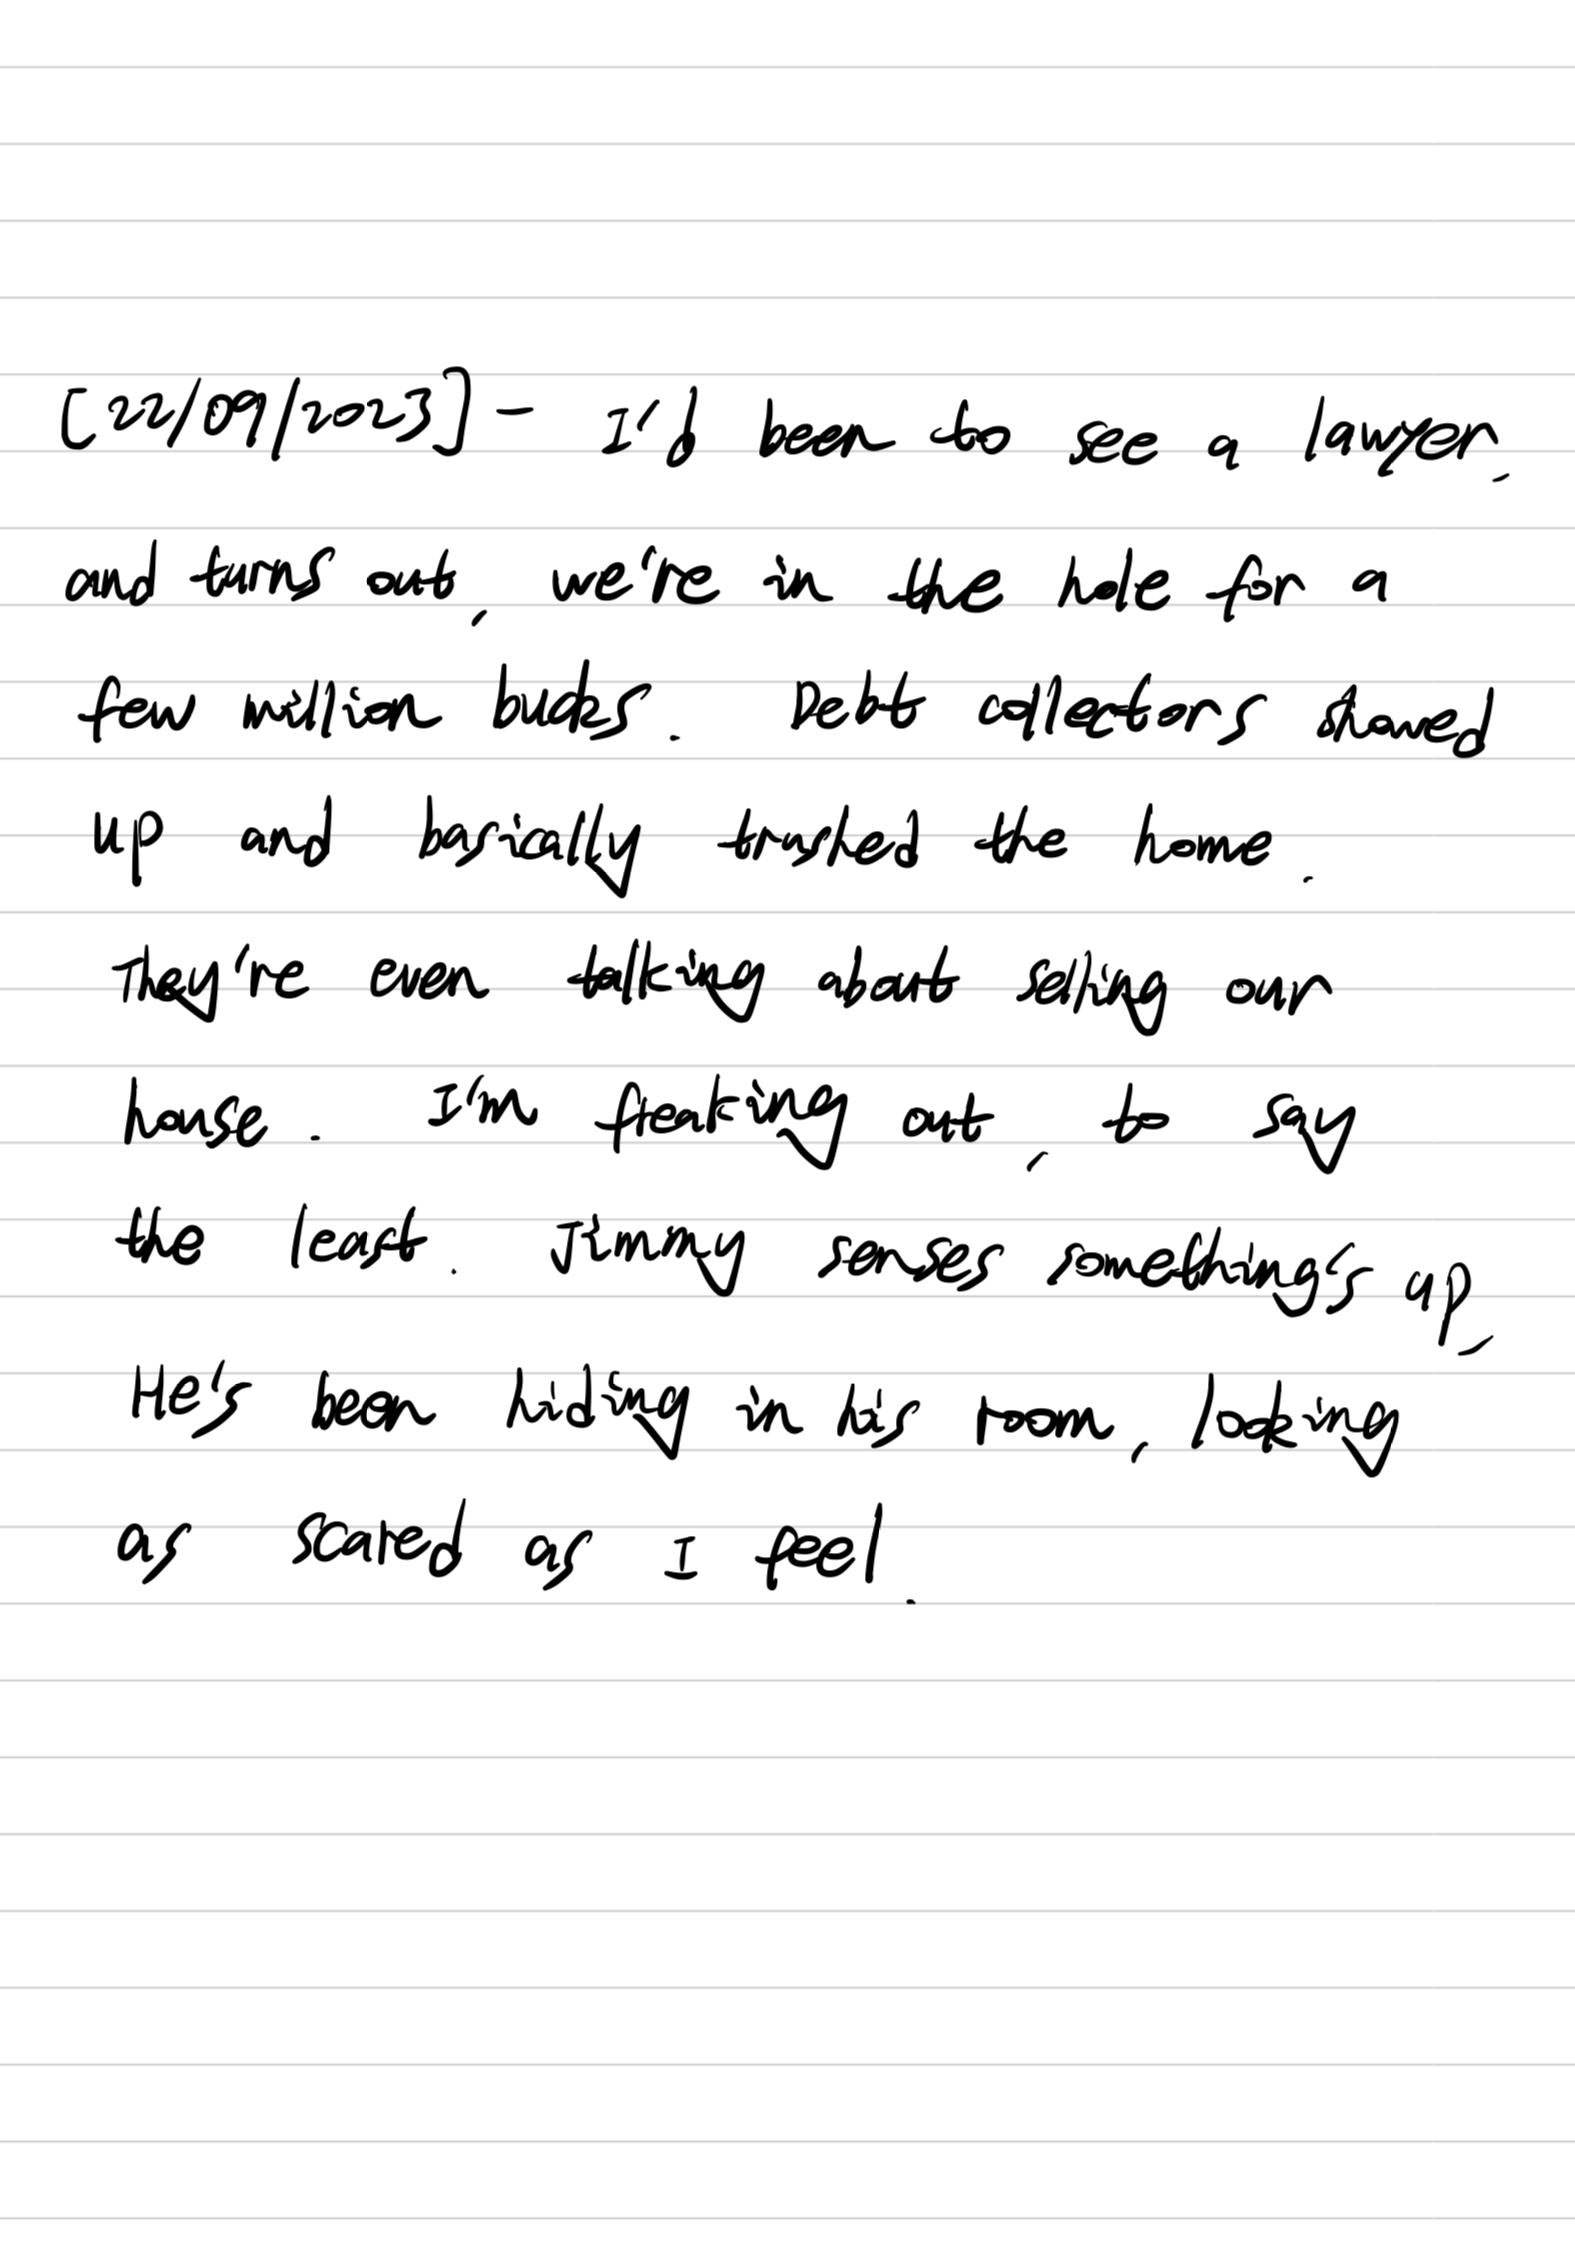 [22/09/2023] - I'd been to see a lawyer,
and turns out, we're in the hole for a
few million bucks. Debt collectors showed
up and basically trashed the home.
They're even talking about selling our
house. I'm freaking out, to say
the least. Jimmy senses something's up,
He's been hiding in his room, looking
as scared as I feel.